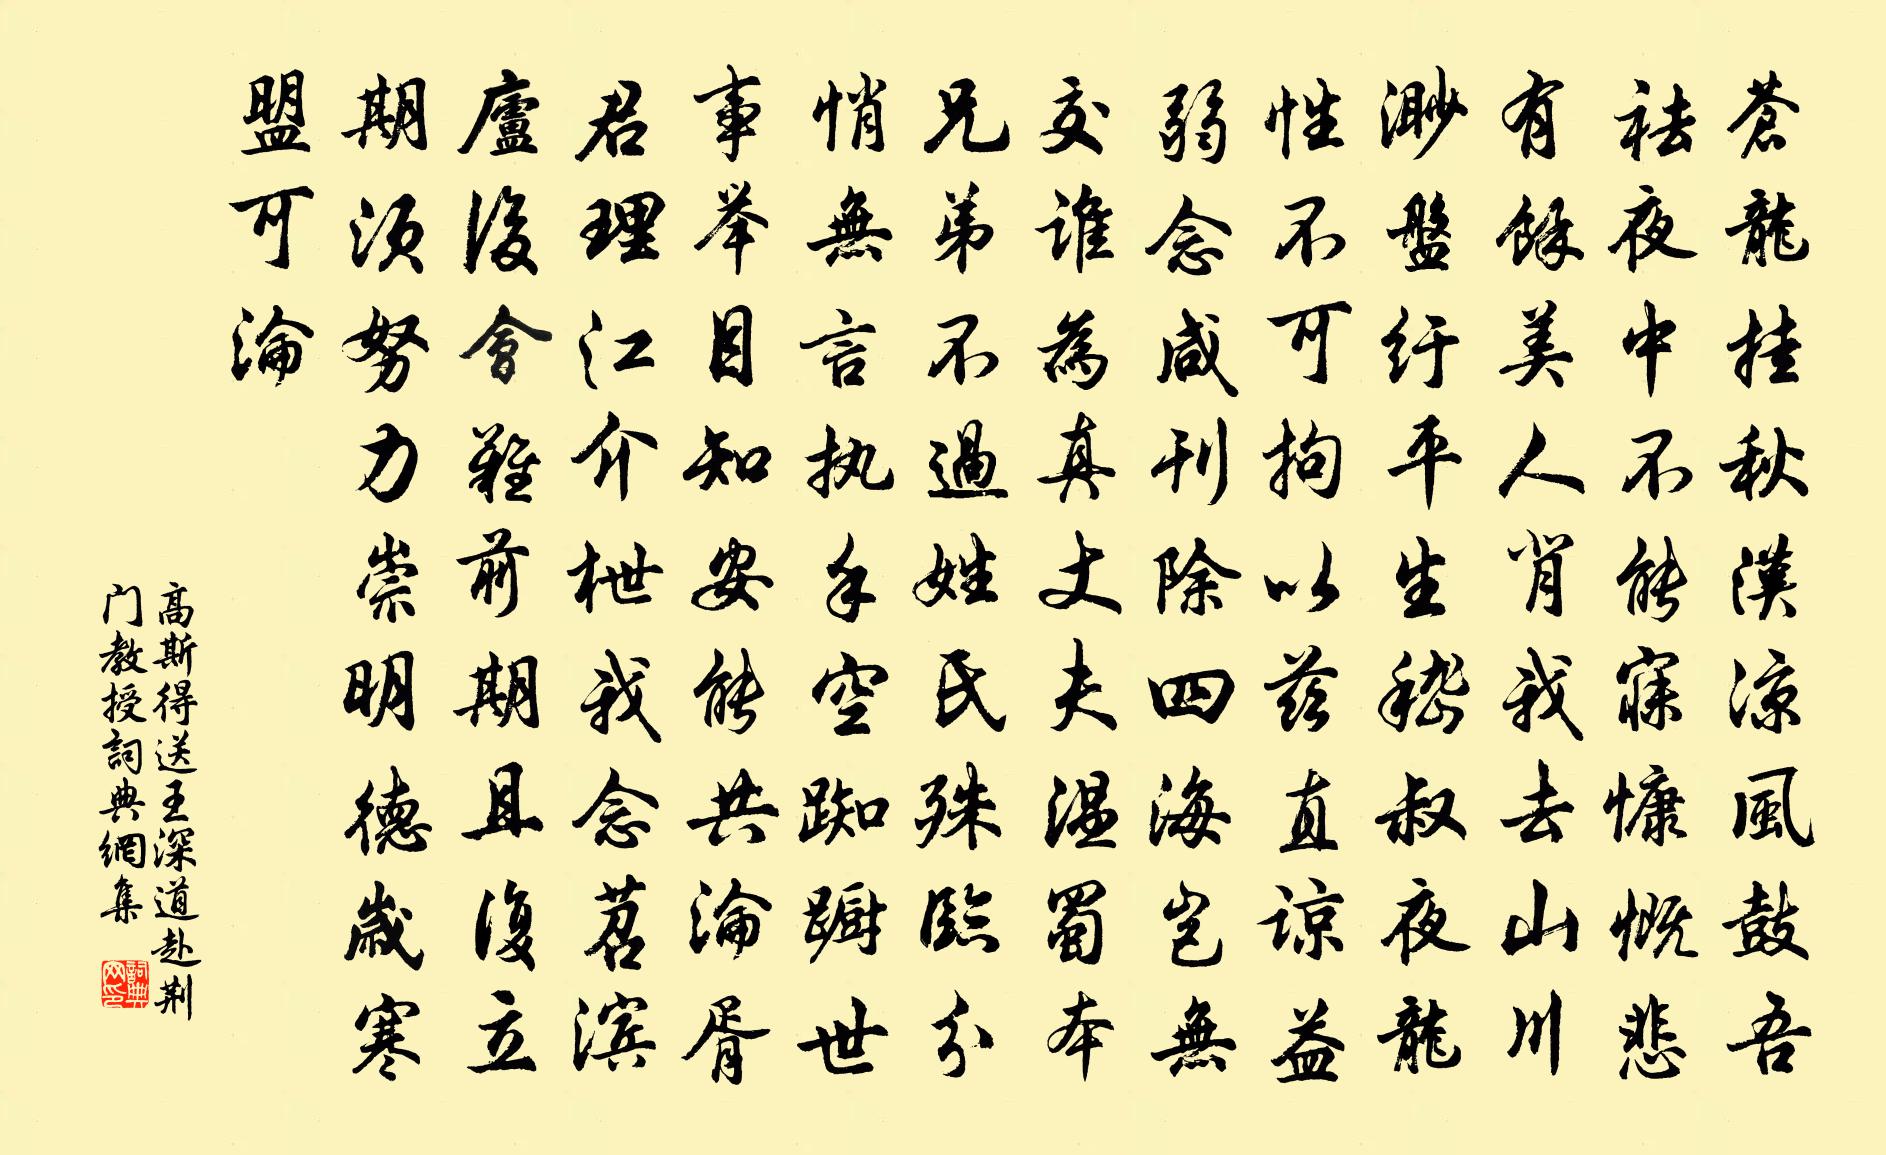 蒼龍挂秋漢涼風鼓吾
祛夜中不能寐慷慨悲
有餘美人肖我去山川
渺盤紆平生嵇叔夜龍
性不可拘以兹直諒益
弱念咸刊除四海豈無
交誰為真丈夫温蜀本
兄弟不過姓氏殊臨分
悄無言执手空踟蹰世
事举目知安能共淪胥
君理江介枻我念苕滨
廬後會難前期且復立
期须努力崇明德歲寒
盟可淪
高斯得送王深道赴荆
门教授詞典網集
詞典
网印